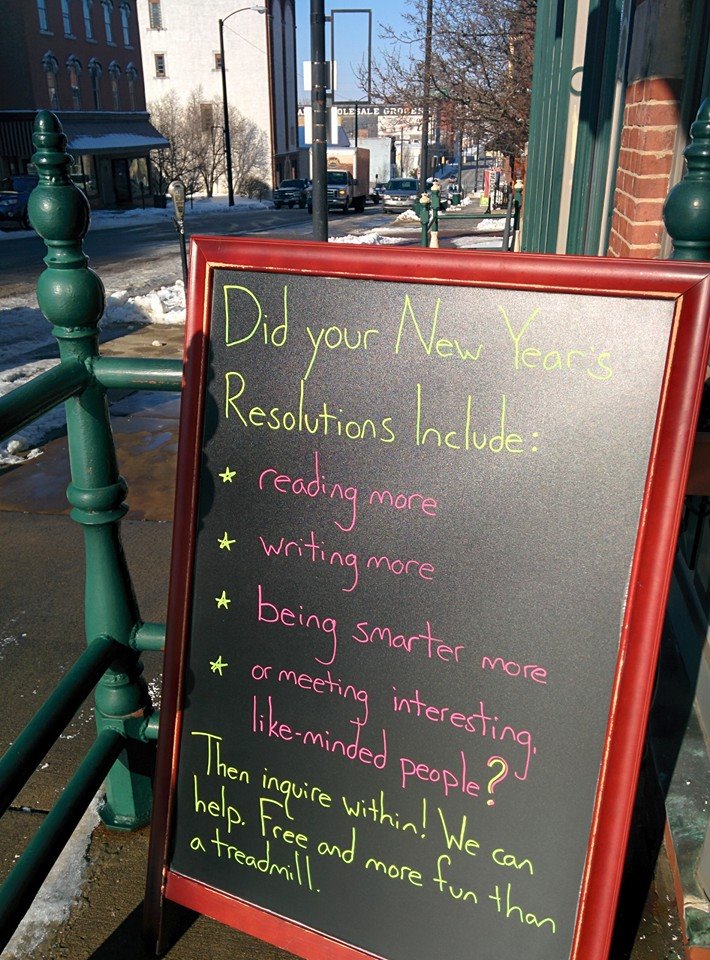 WHOLESALE GROCERS
Did your New Year's
Resolutions Include:
reading more
writing more
being smarter more
or meeting interesting,
like-minded people?
Then inquire within! We can
help. Free and more fun than
a treadmill.